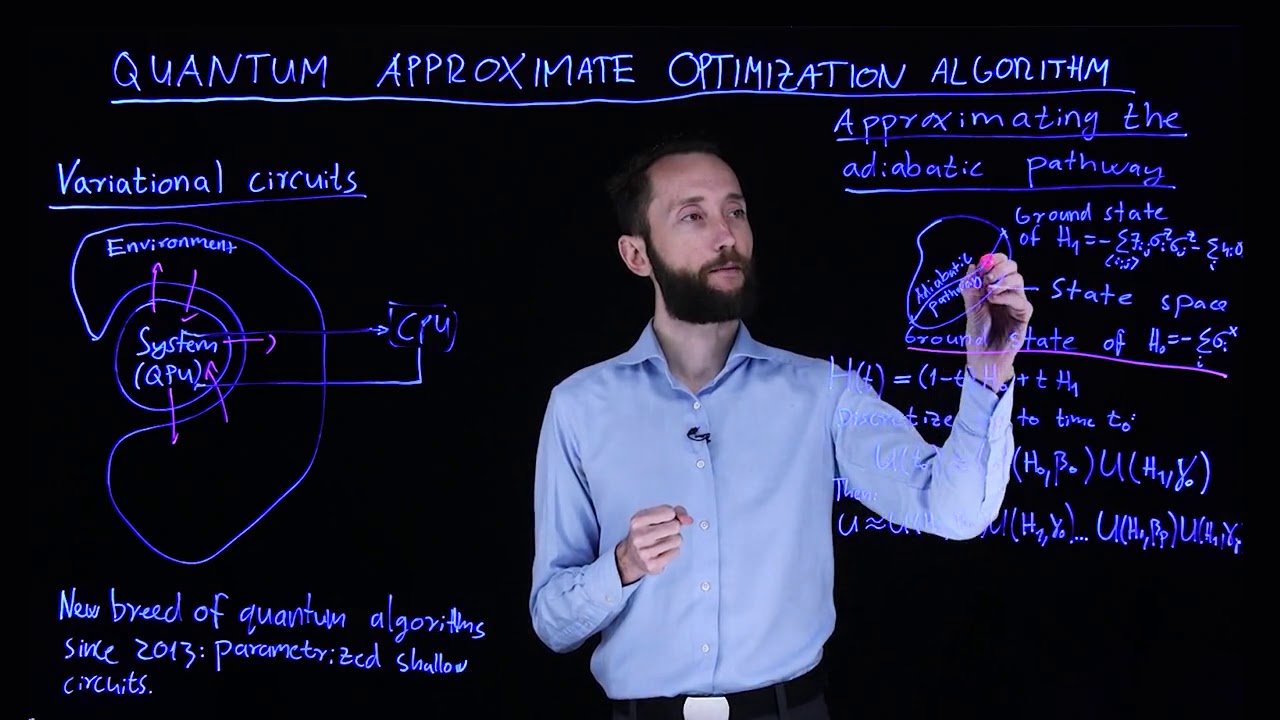 QUANTUM APPROXIMATE OPTIMIZATION ALGORITHM
Variational circuits
Environment
System
(QPU)
CPU
New breed of quantum algorithms
since 2013: parametrized shallow
circuits.
Approximating the
adiabatic pathway
Ground state
of H₁=-∑Jᵢⱼσᵢᶻσⱼᶻ-∑hᵢσ
<i,j> i
Adiabatic
pathway
State space
Ground state of H₀=-∑σᵢˣ
i
H(t) = (1-t) H₀ + t H₁
Discretize to time t₀:
U(t₀) ≈ U(H₀,β₀) U(H₁,γ₀)
Then:
U≈U(H₀,β₀)U(H₁,γ₀)... U(H₀,βₚ)U(H₁,γₚ